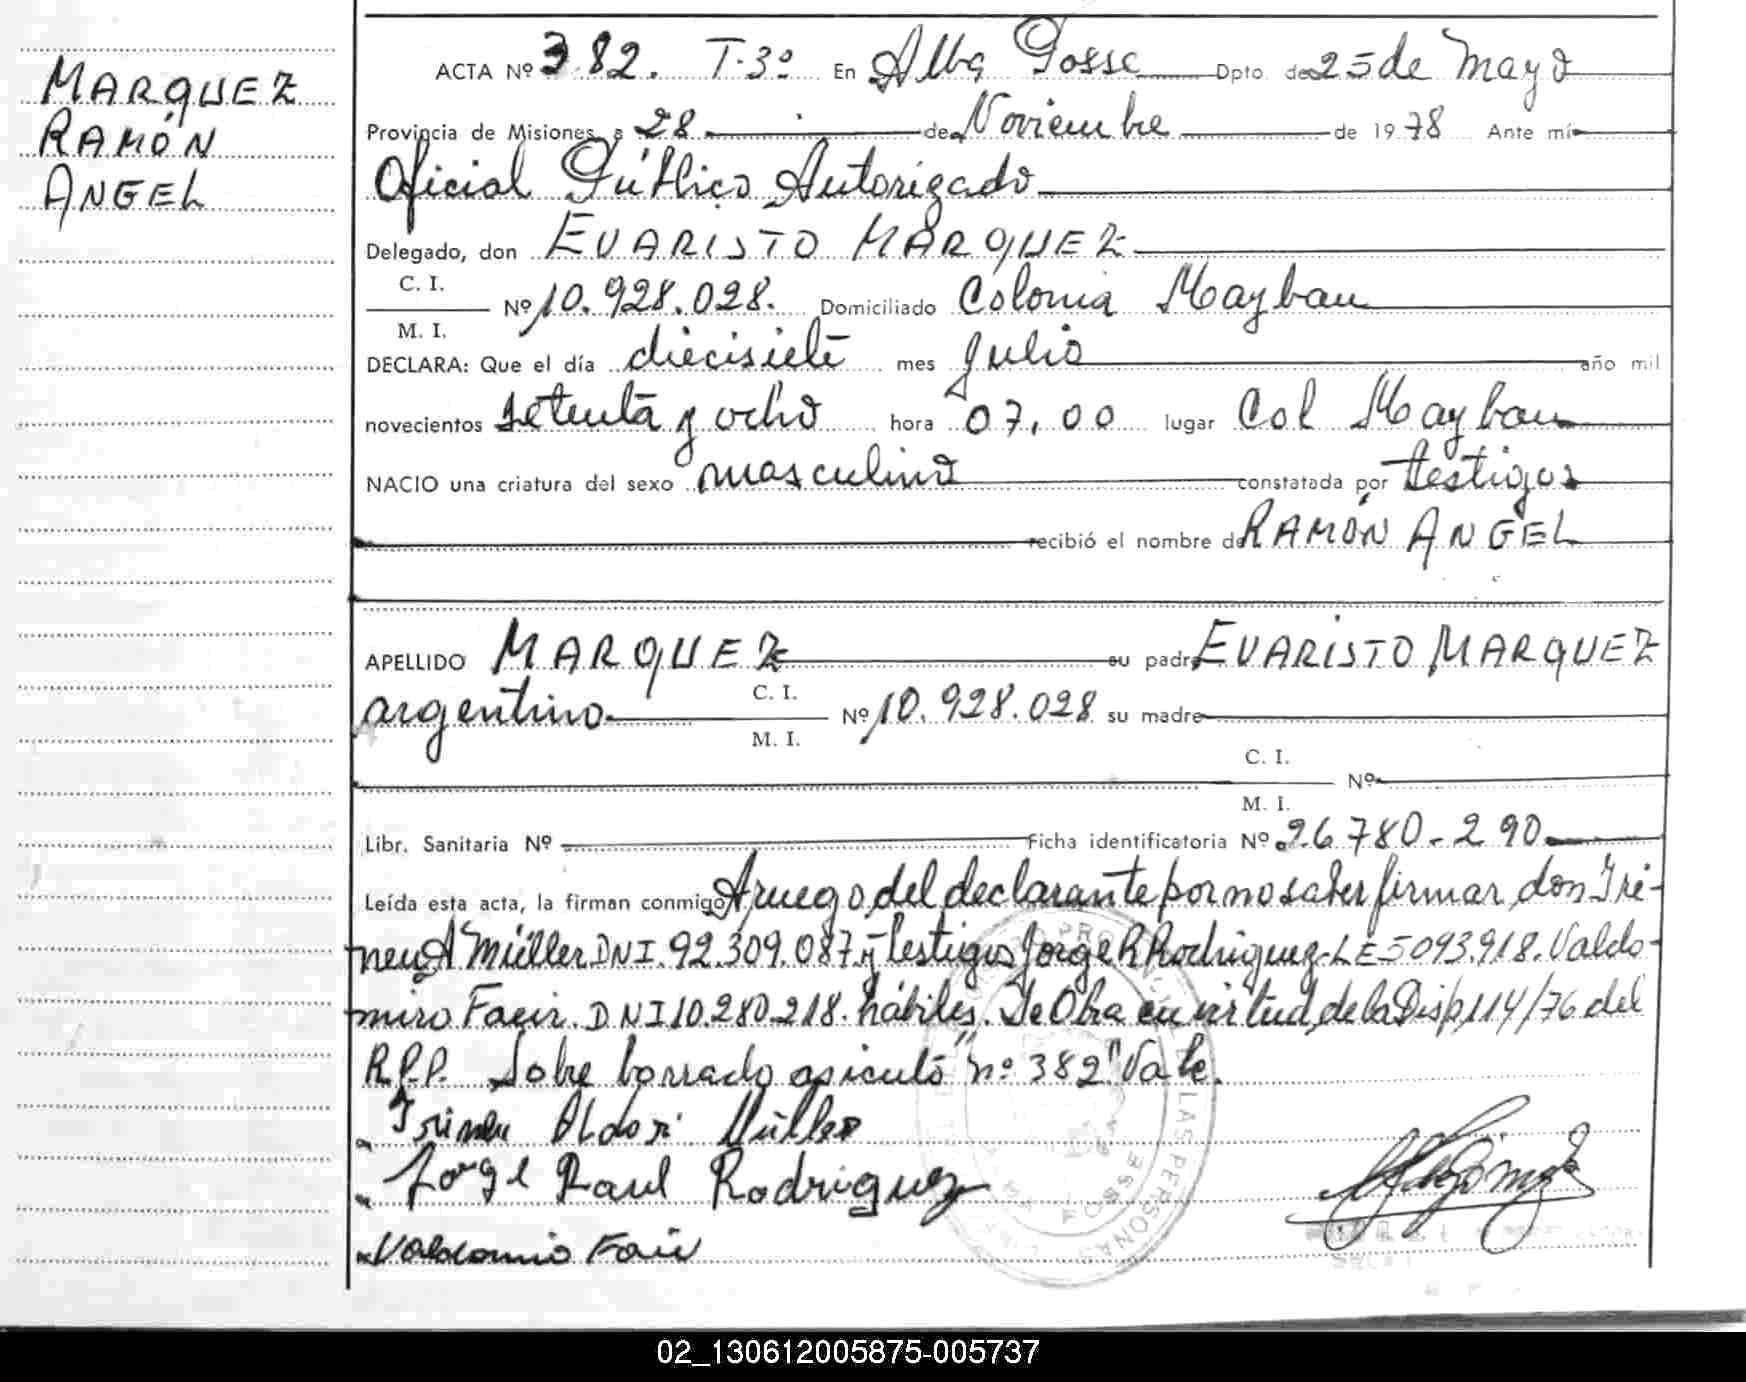 MARQUEZ
RAMÓN
ANGEL
ACTA Nº 382. T-3º En Alba Posse Dpto de 25 de Mayo
Provincia de Misiones, a 28 de Noviembre de 1978 Ante mí
Oficial Público Autorizado
Delegado, don EVARISTO MARQUEZ
C. I.
Nº 10.928.028. Domiciliado Colonia Mayban
M. I.
DECLARA: Que el día diecisiete mes Julio año mil
novecientos setenta y ocho hora 07,00 lugar Col Mayban
NACIO una criatura del sexo masculino constatada por testigos
recibió el nombre de RAMÓN ANGEL
APELLIDO MARQUEZ su padre EVARISTO MARQUEZ
argentino C. I. Nº 10.928.028 su madre
M. I.
C. I.
Nº
M. I.
Libr. Sanitaria Nº Ficha identificatoria Nº 26.780-290
Leída esta acta, la firman conmigo A ruego del declarante por no saber firmar, don Iri-
neu A Müller DNI. 92.309.087 y testigos Jorge R Rodriguez-LE 5093.918. Valdo-
miro Fair. DNI 10.280.218. hábiles. De Obra en virtud de la Disp. 114/76 del
R.P.P. Sobre borrado apiculó "nº 382" Vale.
Irineu Aldori Müller
Jorge Raul Rodriguez
Valdomiro Fair
LAS PERSONAS
POSSE
02_130612005875-005737